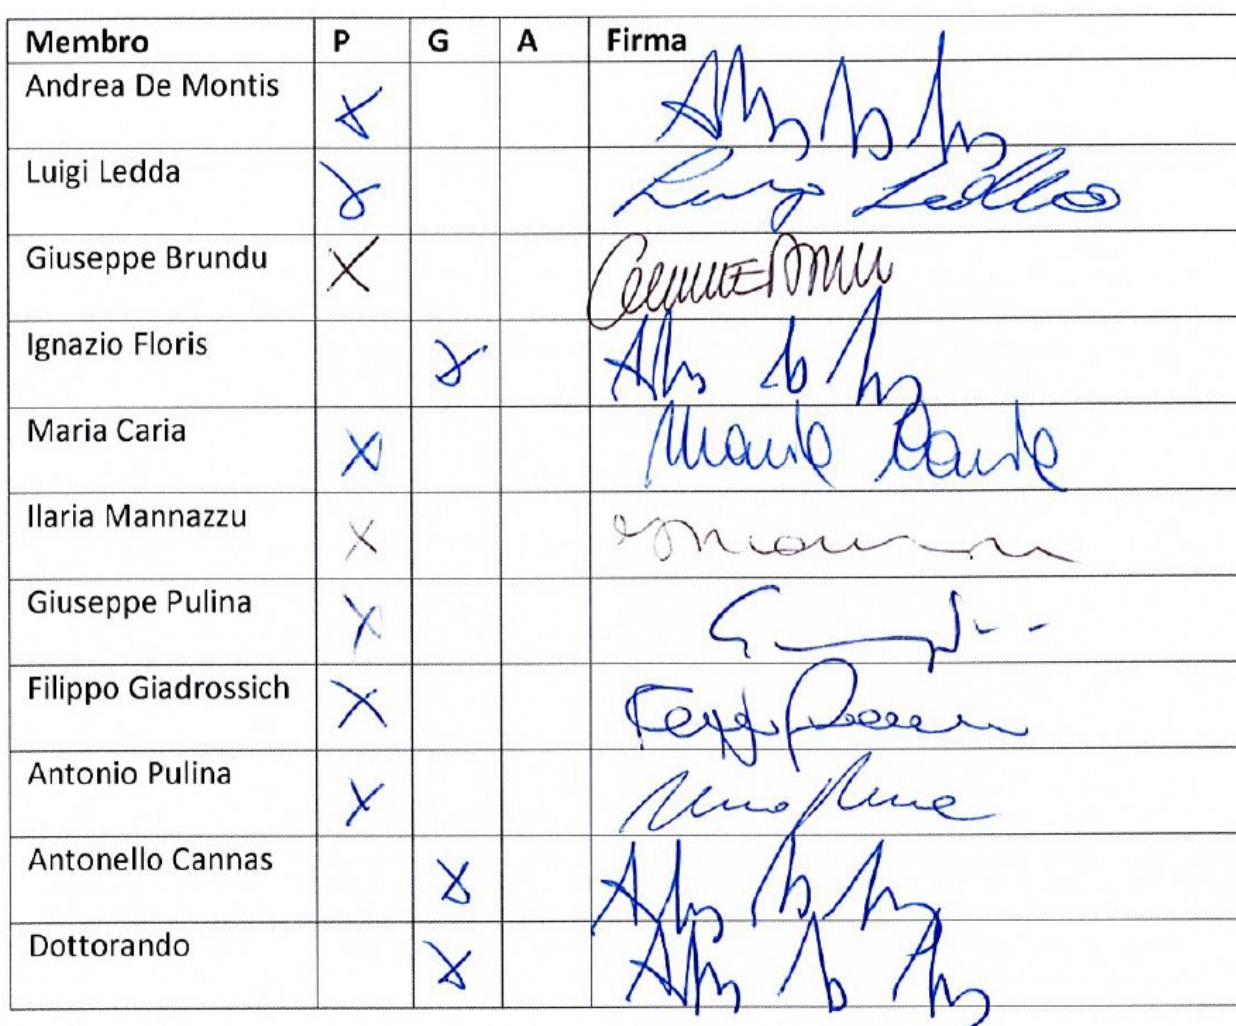 Membro P G A Firma
Andrea De Montis X
Luigi Ledda X Luigi Ledda
Giuseppe Brundu X
Ignazio Floris X
Maria Caria X Maria Caria
Ilaria Mannazzu X
Giuseppe Pulina X
Filippo Giadrossich X
Antonio Pulina X
Antonello Cannas X
Dottorando X